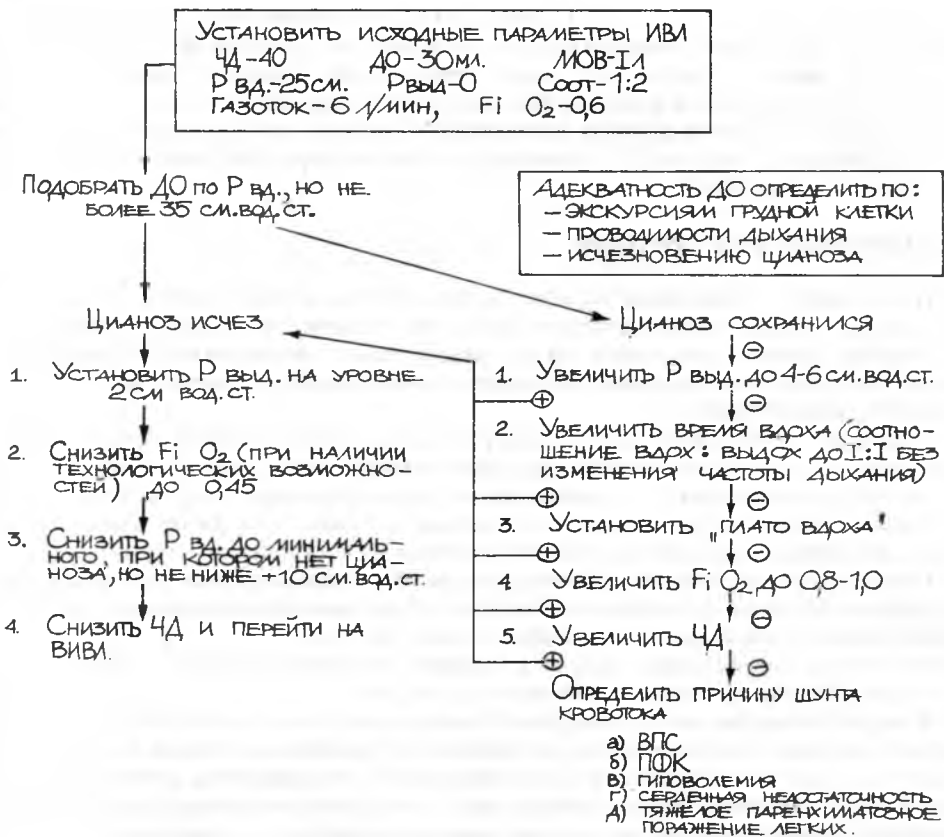 Установить исходные параметры ИВЛ
ЧД-40 ДО-30мл. МОВ-Iл
Р вд.-25см. Рвыд-0 Соот-1:2
Газоток-6 л/мин, Fi O₂-0,6
Подобрать ДО по Р вд., но не
более 35 см.вод.ст.
Адекватность ДО определить по:
– экскурсиям грудной клетки
– проводимости дыхания
– исчезновению цианоза
Цианоз исчез
1. Установить Р выд. на уровне
2см вод. ст.
2. Снизить Fi O₂ (при наличии
технологических возможно-
стей) до 0,45
3. Снизить Р вд. до минималь-
ного, при котором нет циа-
ноза, но не ниже +10 см.вод.ст.
4. Снизить ЧД и перейти на
ВИВЛ.
Цианоз сохранился
⊖
1. Увеличить Р выд. до 4-6 см.вод.ст.
⊕ ⊖
2. Увеличить время вдоха (соотно-
шение вдох : выдох до I:I без
изменения частоты дыхания)
⊕ ⊖
3. Установить „плато вдоха"
⊕ ⊖
4. Увеличить Fi O₂ до 0,8-1,0
⊕ ⊖
5. Увеличить ЧД
⊕ ⊖
Определить причину шунта
кровотока
а) ВПС
б) ПФК
в) гиповолемия
г) сердечная недостаточность
д) тяжелое паренхиматозное
поражение легких.